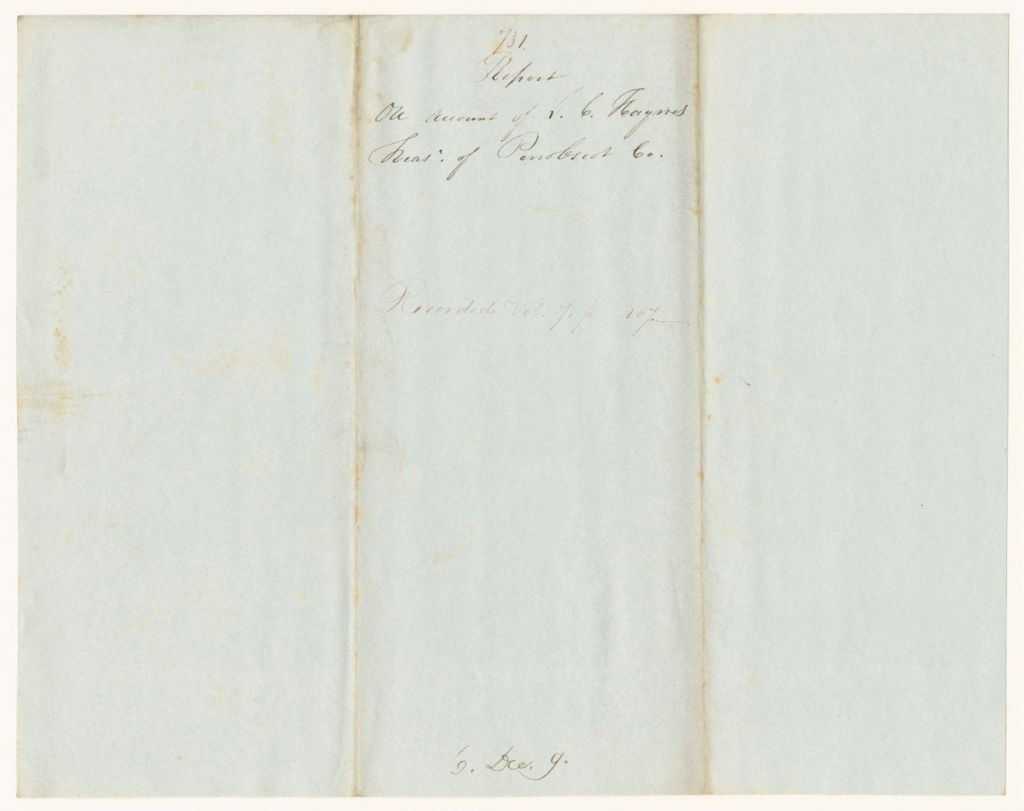 731.
Report
On account of J. C. Haynes
Treas. of Penobscot Co.
Recorded Vol. 7. p. 107
6. Dec. 9.